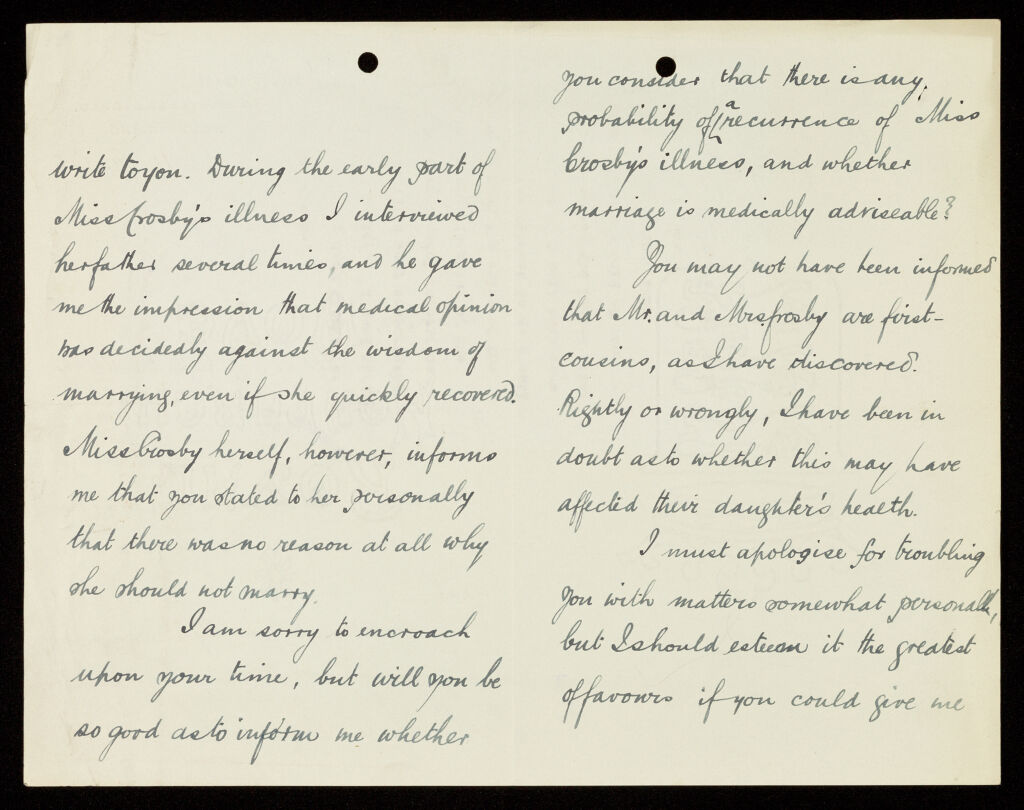 write to you. During the early part of
Miss Crosby's illness I interviewed
her father several times, and he gave
me the impression that medical opinion
was decidedly against the wisdom of
marrying, even if she quickly recovered.
Miss Crosby herself, however, informs
me that you stated to her personally
that there was no reason at all why
she should not marry.
I am sorry to encroach
upon your time, but will you be
so good as to inform me whether
you consider that there is any
probability of a recurrence of Miss
Crosby's illness, and whether
marriage is medically adviseable?
You may not have been informed
that Mr. and Mrs. Crosby are first-
cousins, as I have discovered.
Rightly or wrongly, I have been in
doubt as to whether this may have
affected their daughter's health.
I must apologise for troubling
you with matters somewhat personal,
but I should esteem it the greatest
of favours if you could give me